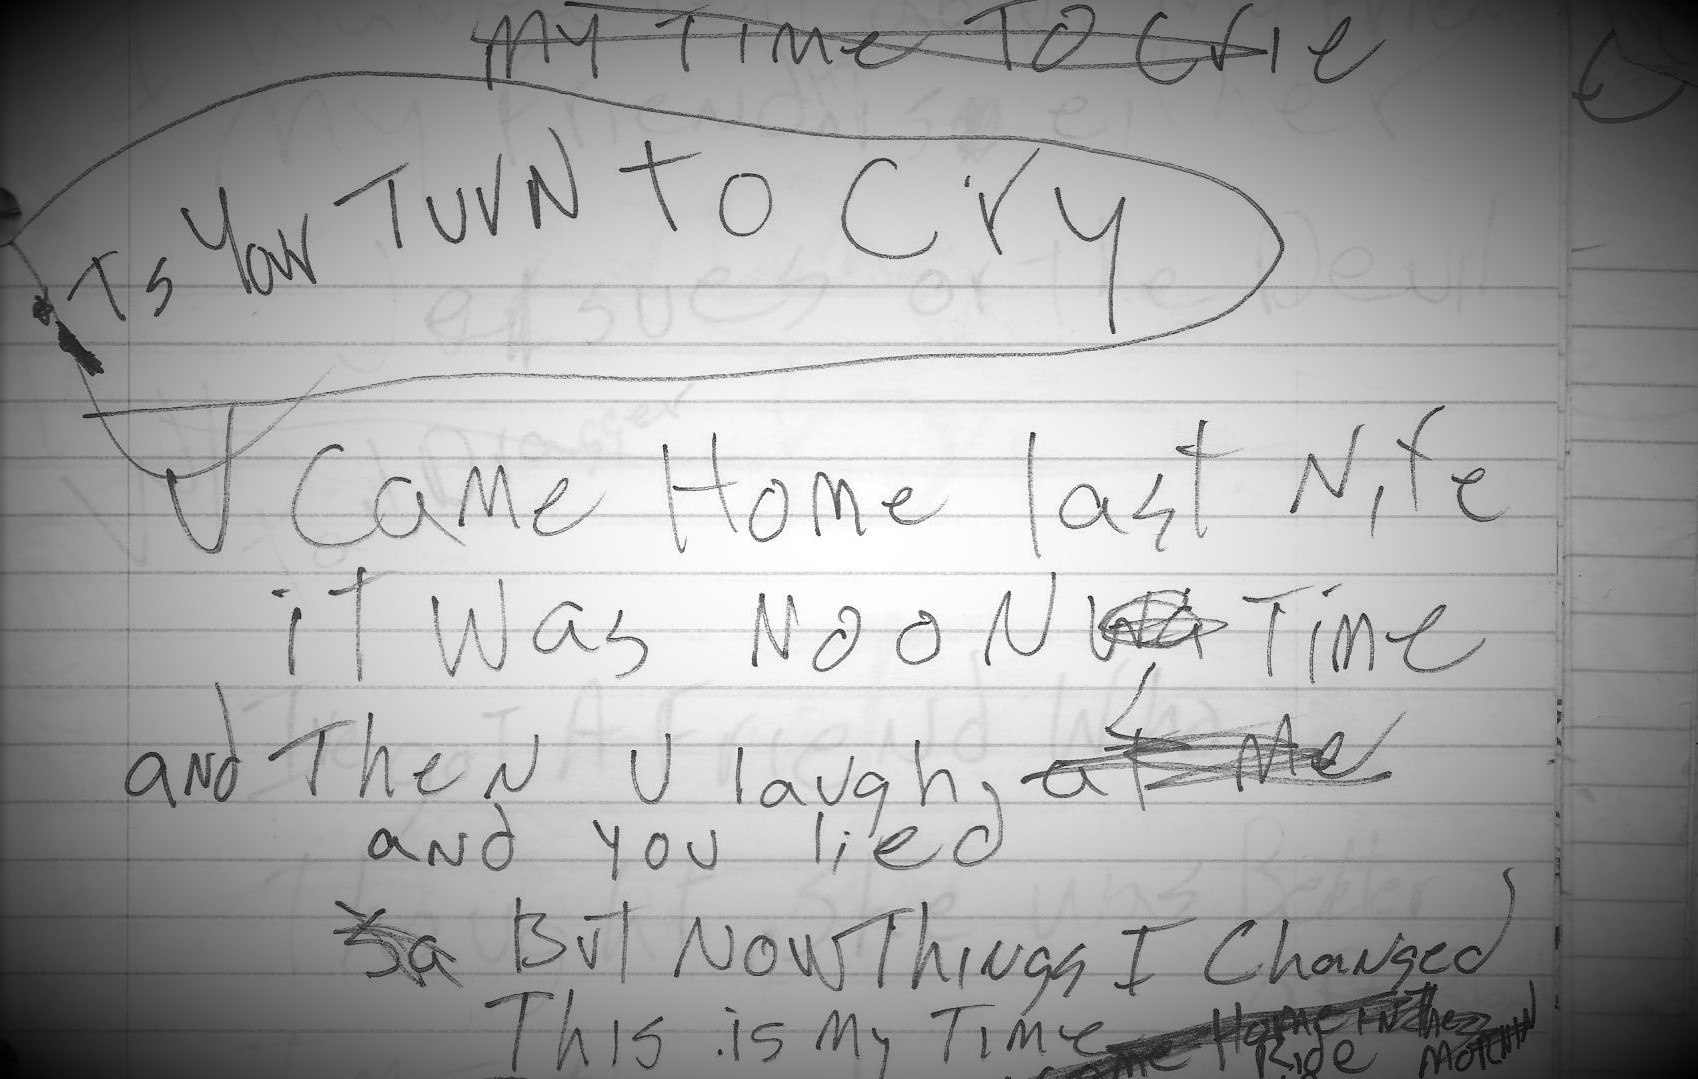 My Time To Crie
Is Your TURN to Cry
U Came Home last Nite
it was NOON Time
and Then U laugh, at Me
and you lied
But Now Things I Changed
This is My Time Home in The
Ride Mornin